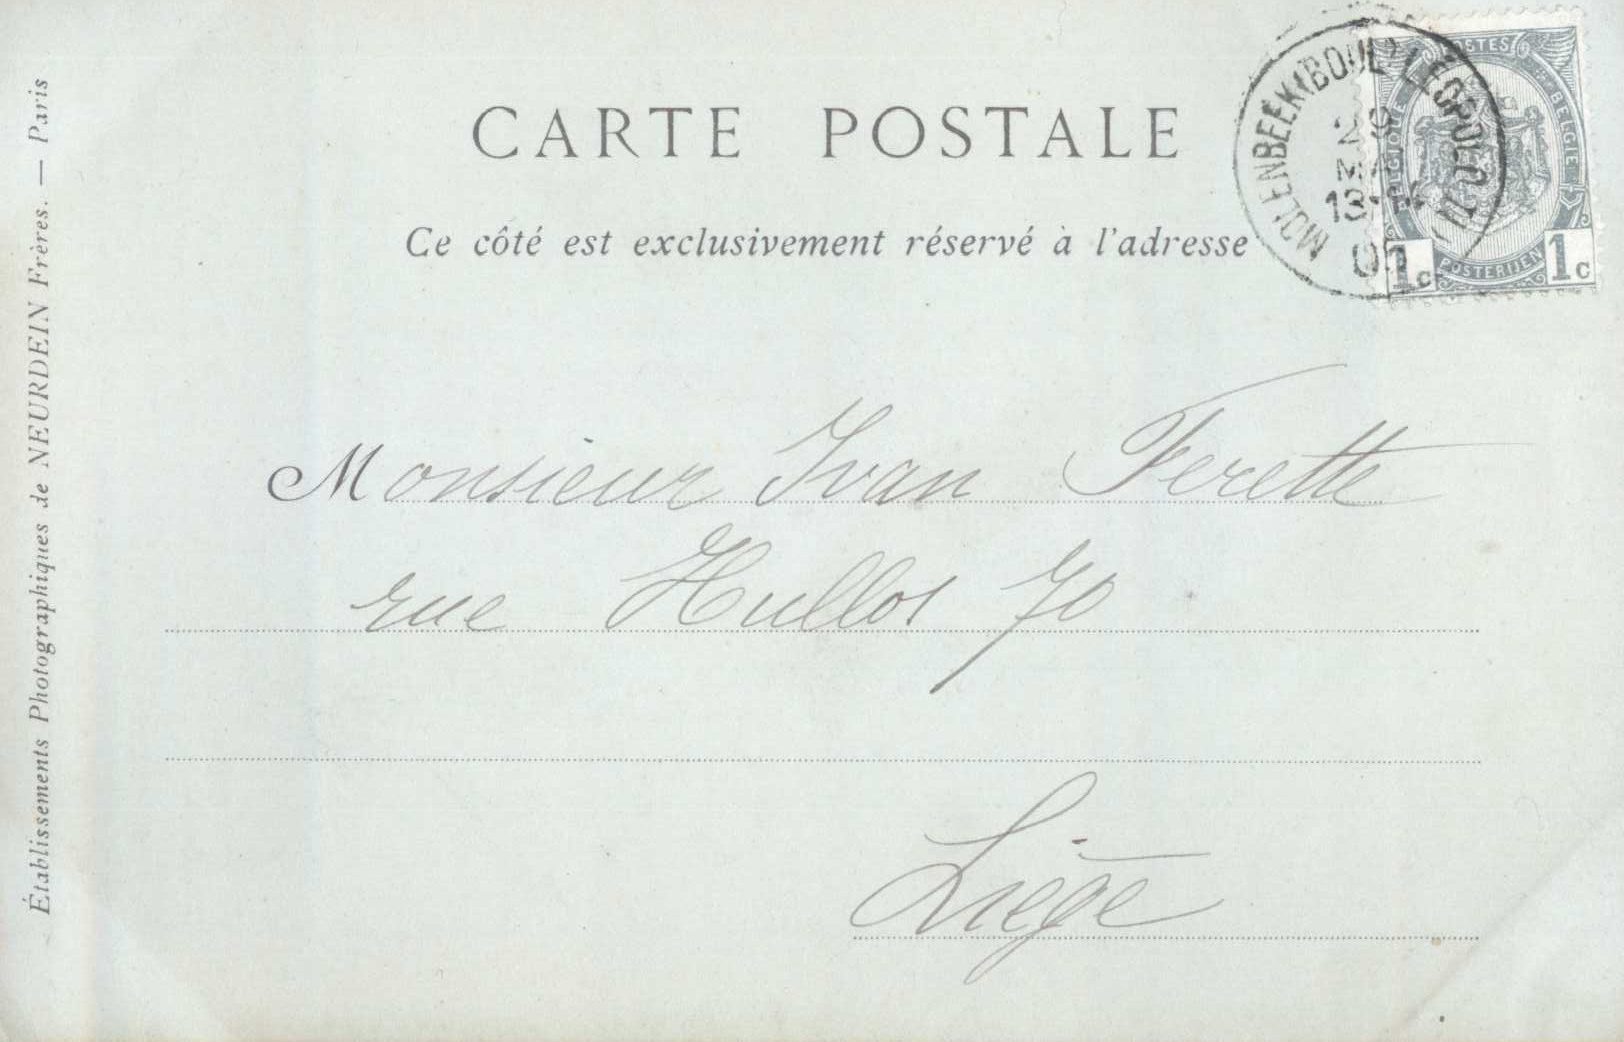 CARTE POSTALE
Ce côté est exclusivement réservé à l'adresse
Monsieur Ivan Ferette
rue Hullos 70
Liège
Établissements Photographiques de NEURDEIN Frères. — Paris
MOLENBEEK (BOULD LÉOPOLD II)
29
13-14
POSTES
BELGIQUE
BELGIE
POSTERIJEN
1c 1c